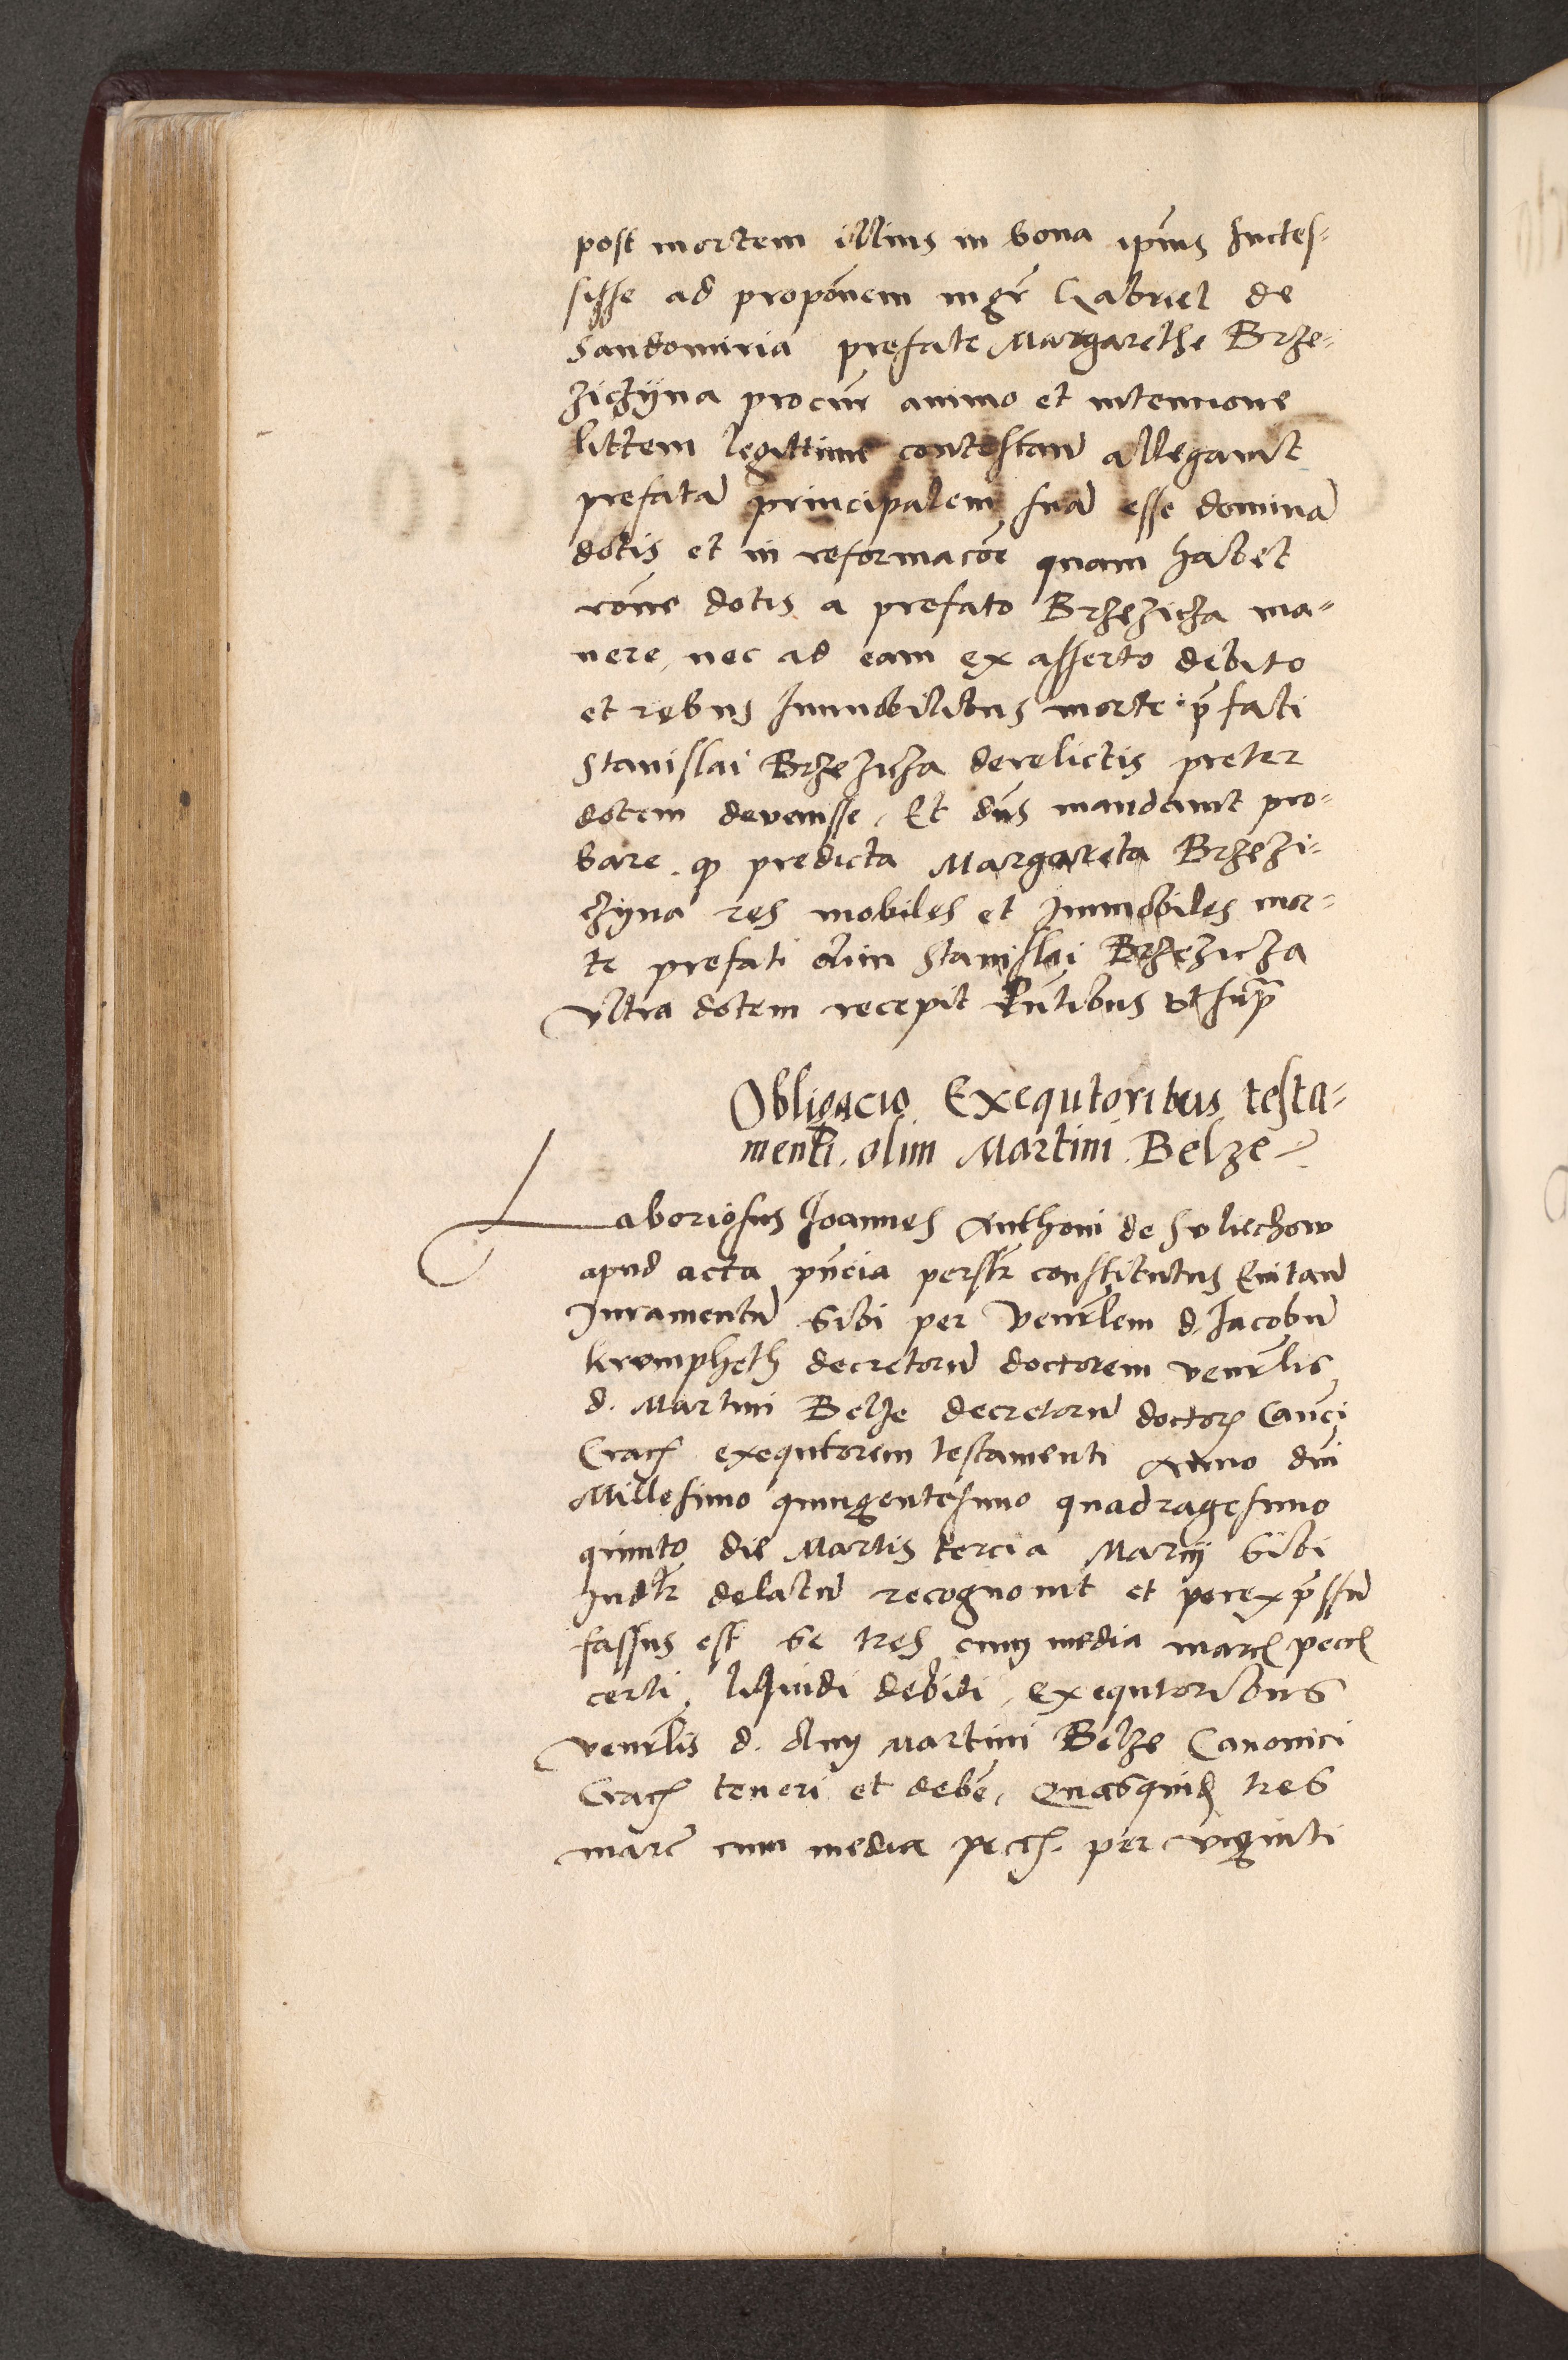 post mortem illius in bona ipius succes-
sisse ad proponem mgr Gabriel de
Sandomiria prefate Margarethe Brze-
ziczyna procur animo et intencione
littem legittime contestan allegavit
prefatā principalem suā esse dominā
dotis et in reformacōe quam habet
rōne dotis a prefato Brzezicza ma-
nere, nec ad eam ex asserto debito
et rebus Immobilibus morte p̄fati
Stanislai Brzezicza derelictis preter
dotem devenisse. Et dns mandavit pro-
bare. q predicta Margareta Brzezi-
czyna res mobiles et Immobiles mor-
te prefati olim Stanislai Brzezicza
ultra dotem recepit p̄ntibus ut supra
Obligacio Exequtoribus testa-
menti. olim Martini Belze
Laboriosus Joannes Anthoni de Suliechow
apud acta pn̄cia persr constitutus Evitan
Juramentū sibi per Venrlem d. Jacobū
krompheth decretorū doctorem venrlis
d. Martini Belze decretorū doctor Canci
Crac exequtorem testamenti Anno dni
Millesimo quingentesimo quadragesimo
quinto die Martis tercia Marcij sibi
Judr delatū recognovit et per exp̄ssū
fassus est se tres cum media marc pecc
certi, liquidi debiti, exequtoribus
venrlis d. olim Martini Belze Canonici
Crac teneri et debē, Quasquid tres
marc cum media pecc. per viginti